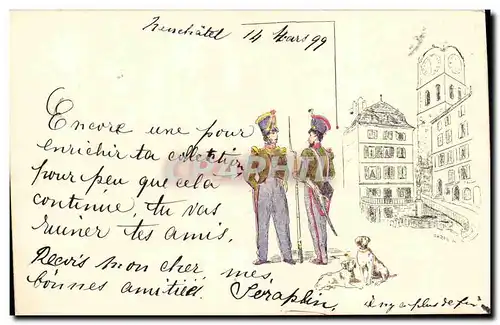 Neuchâtel 14 Mars 99
Encore une pour
enrichir ta collection
pour peu que cela
continue, tu vas
ruiner tes amis.
Reçois mon cher, mes
bonnes amitiés. Séraphin,
il n'y a plus de
CARPHILA